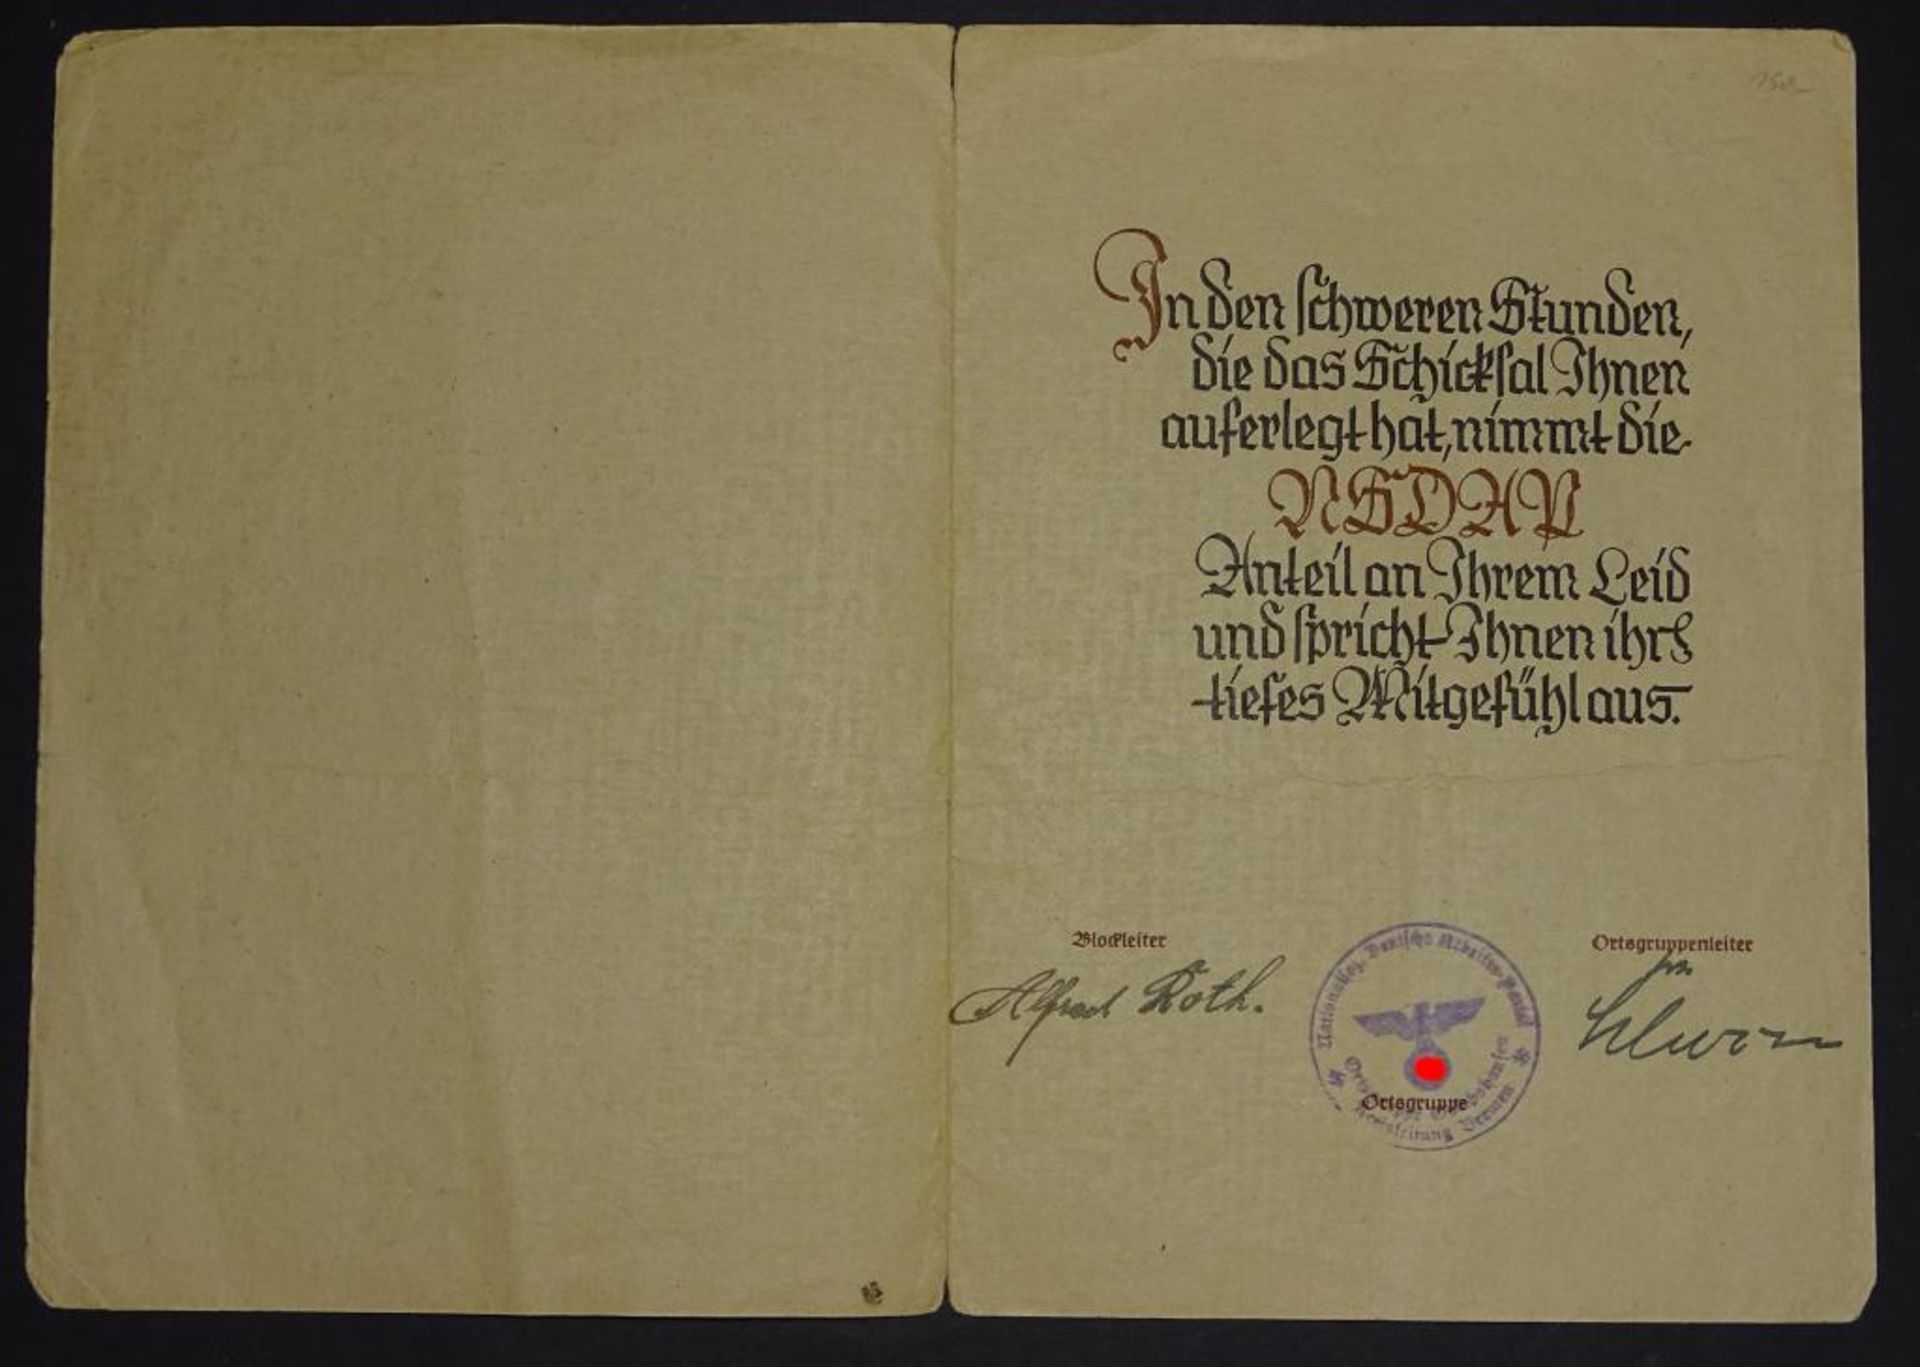 In den schweren Stunden,
die das Schicksal Ihnen
auferlegt hat, nimmt die
NSDAP
Anteil an Ihrem Leid
und spricht Ihnen ihr
tiefes Mitgefühl aus.
Blockleiter
Ortsgruppenleiter
Alfred Roth.
Nationalsoz. Deutsche Arbeiter-Partei
Ortsgruppe
Kreisleitung Bremen